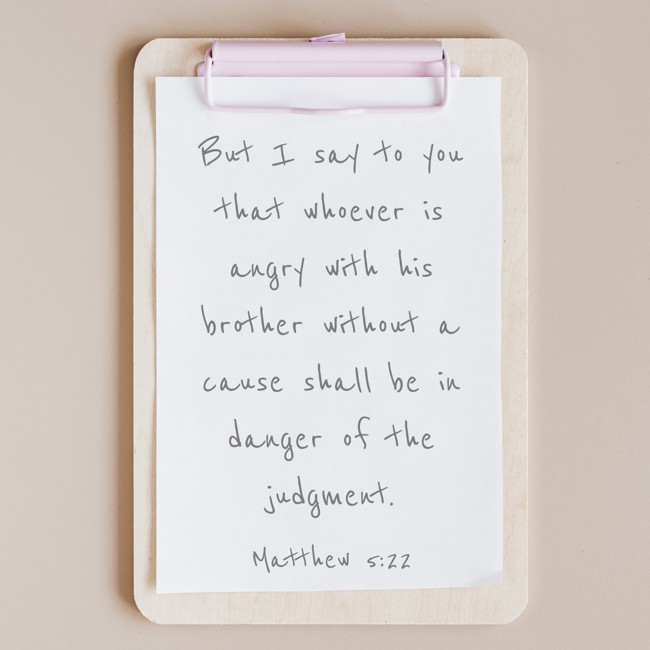 But I say to you
that whoever is
angry with his
brother without a
cause shall be in
danger of the
judgment.
Matthew 5:22